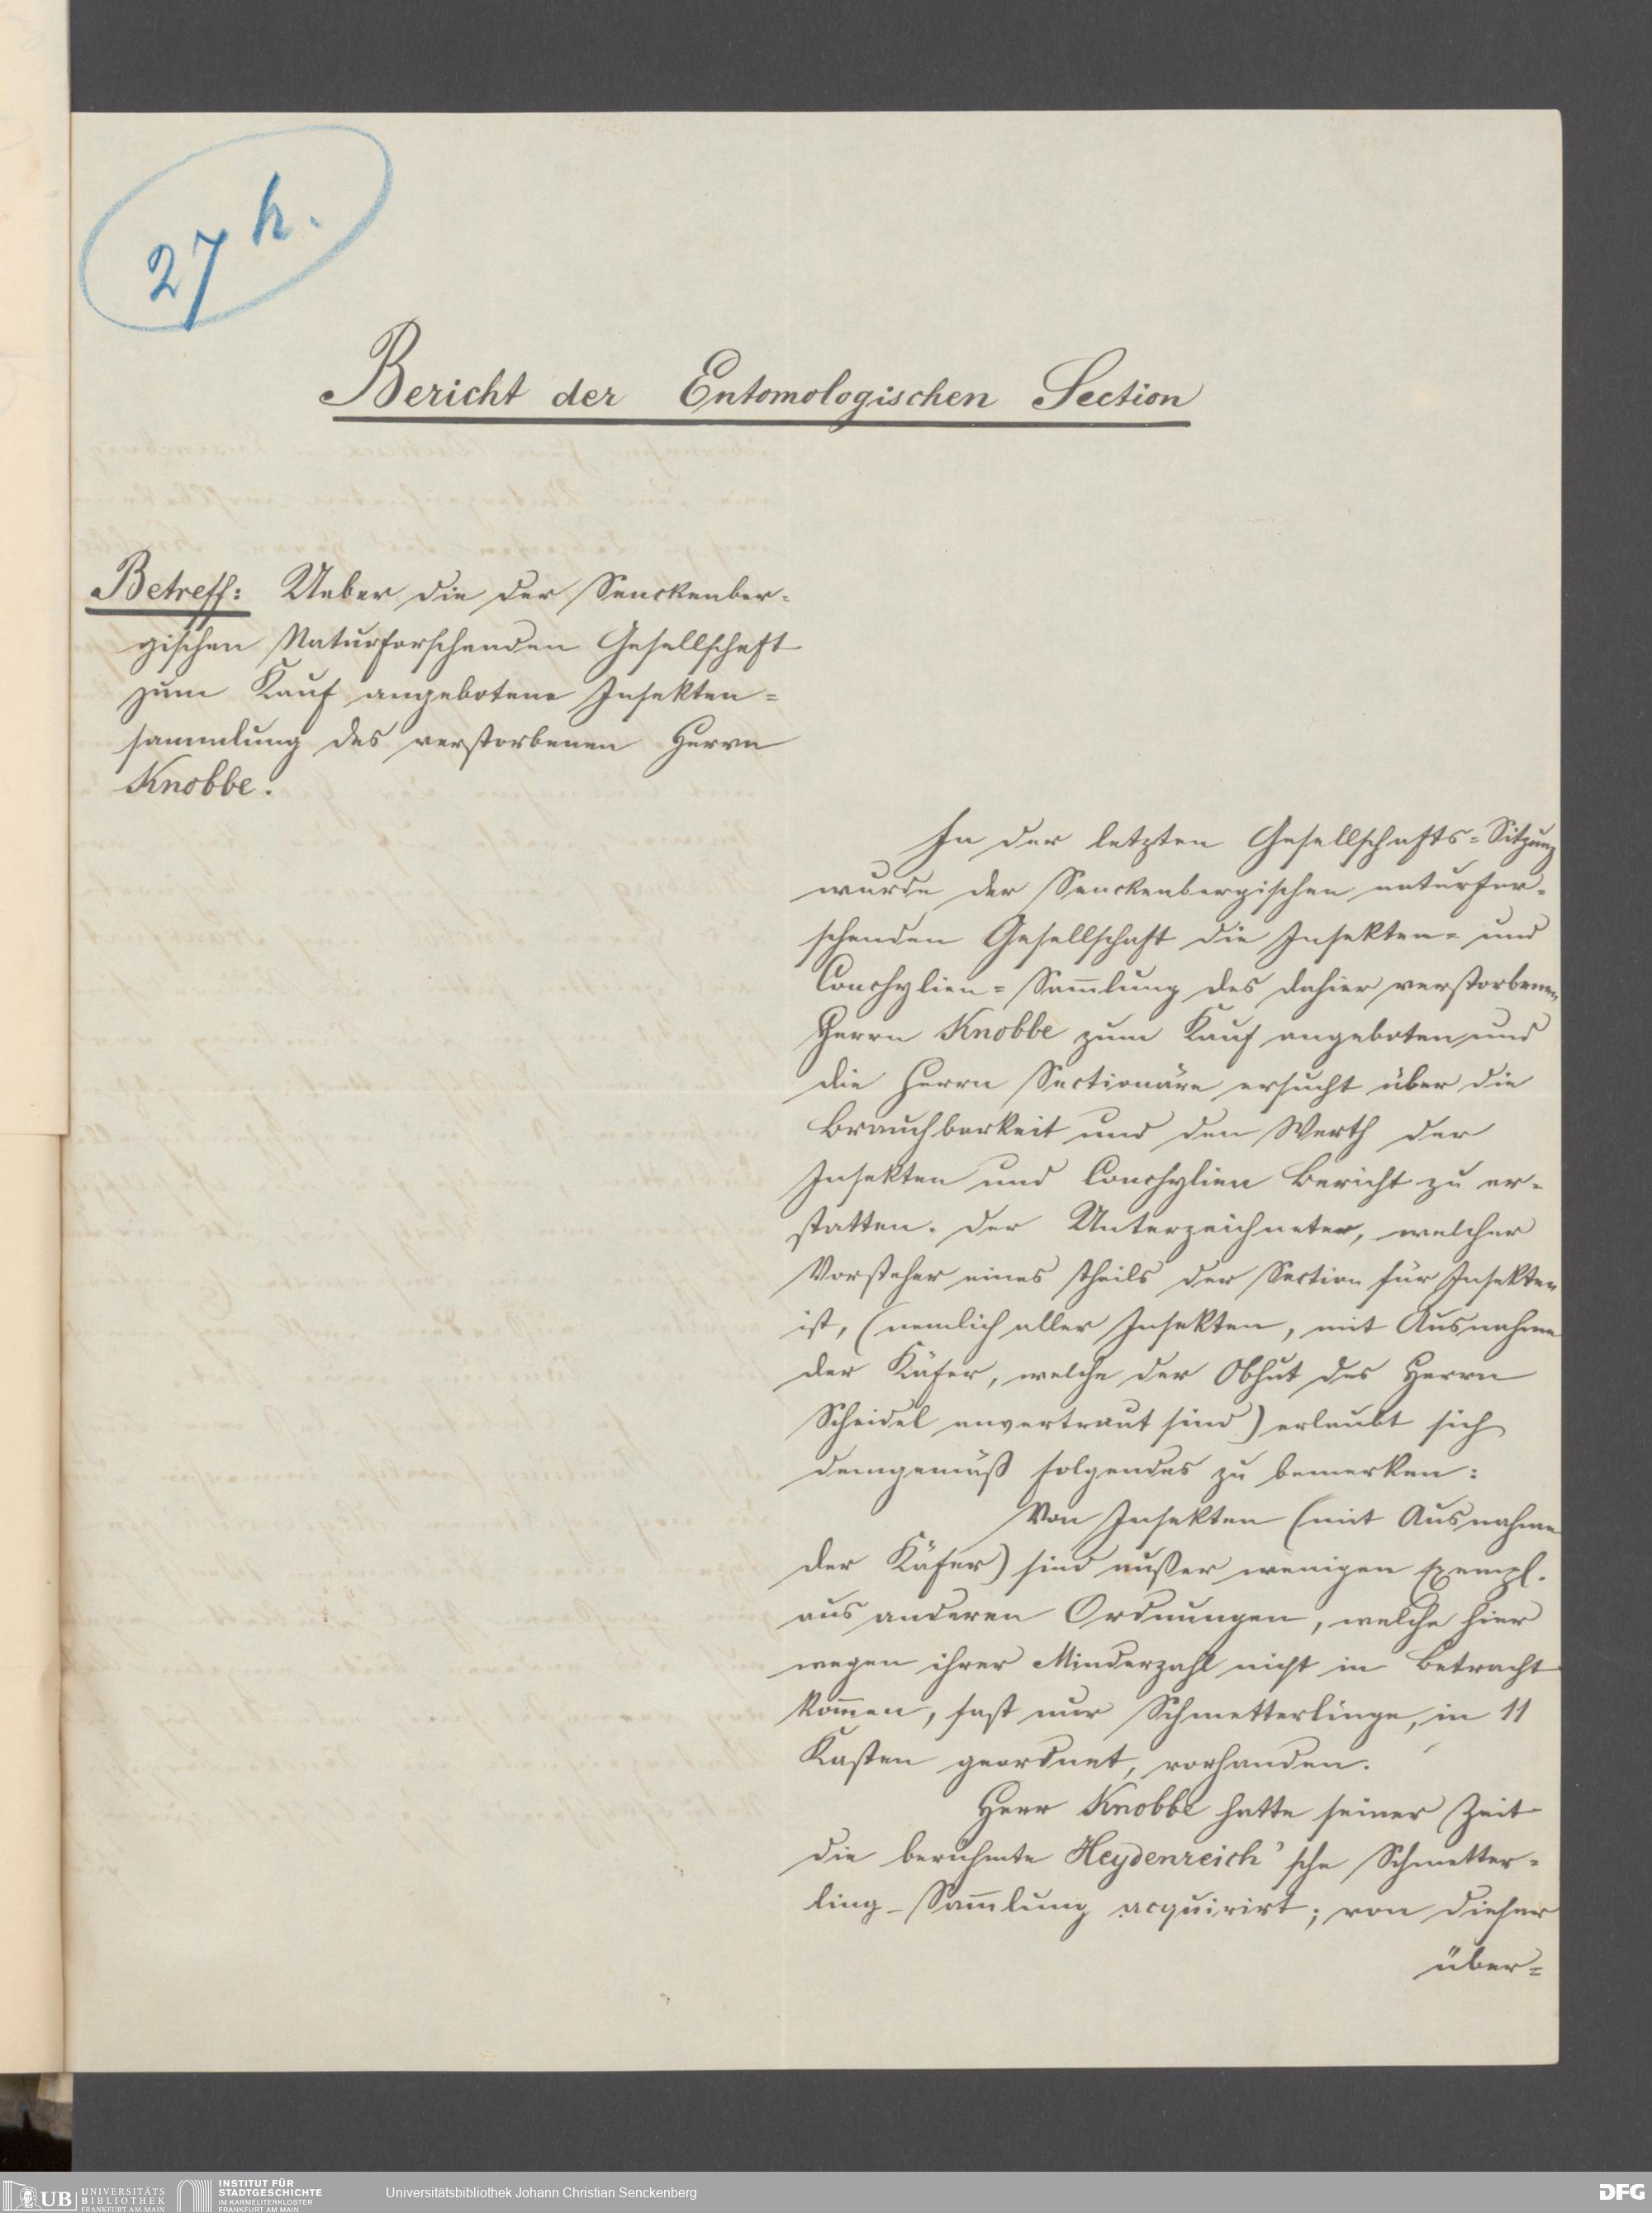 27 h.
Bericht der Entomologischen Section
Betreff: Ueber die der Senckenber-
gischen Naturforschenden Gesellschaft
zum Kauf angebotene Insekten=
sammlung des verstorbenen Herrn
Knobbe.
In der letzten Gesellschafts=Sitzung
wurde der Senckenbergischen naturfor-
schenden Gesellschaft die Insekten= und
Conchylien=Sam̄lung des dahier verstorbenen
Herrn Knobbe zum Kauf angeboten und
die Herrn Sectionäre ersucht über die
Brauchbarkeit und den Werth der
Insekten und Conchylien Bericht zu er-
statten. Der Unterzeichneter, welcher
Vorsteher eines Theils der Section für Insekten
ist, (nemlich aller Insekten, mit Ausnahme
der Käfer, welche der Obhut des Herrn
Scheidel anvertraut sind) erlaubt sich
demgemäß folgendes zu bemerken:
Von Insekten (mit Ausnahme
der Käfer) sind außer wenigen Exempl.
aus anderen Ordnungen, welche hier
wegen ihrer Minderzahl nicht in Betracht
kom̄en, fast nur Schmetterlinge, in 11
Kasten geordnet, vorhanden.
Herr Knobbe hatte seiner Zeit
die berühmte Heydenreich'sche Schmetter=
ling-Sam̄lung acquirirt; von dieser
über=
UB UNIVERSITÄTS
BIBLIOTHEK
FRANKFURT AM MAIN
INSTITUT FÜR
STADTGESCHICHTE
IM KARMELITERKLOSTER
FRANKFURT AM MAIN
Universitätsbibliothek Johann Christian Senckenberg
DFG